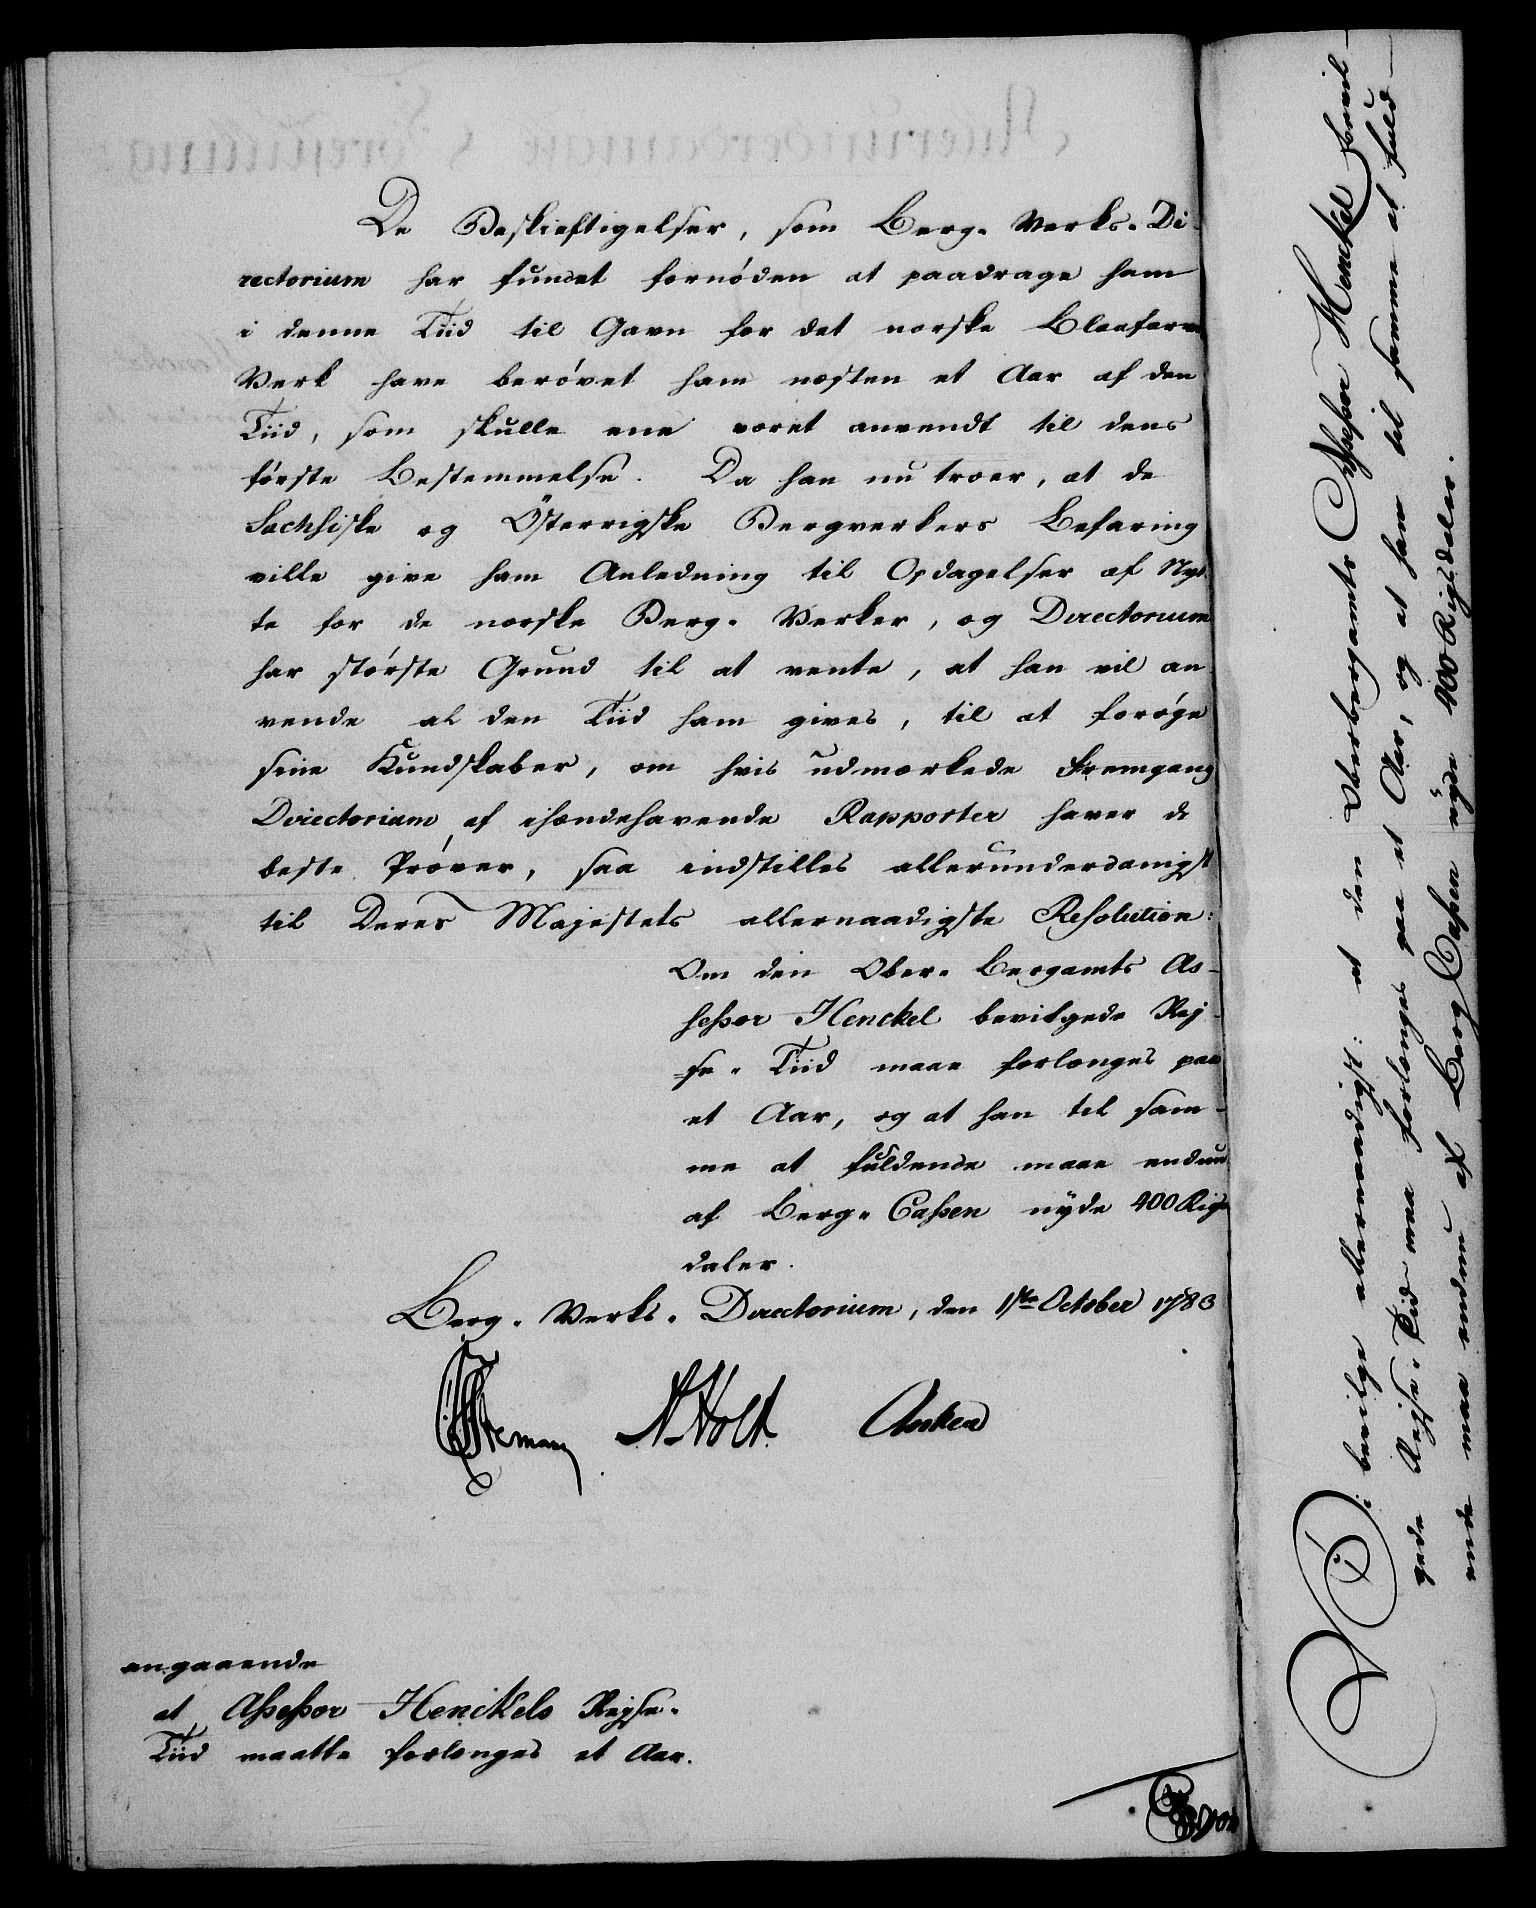 De Beskieftigelser, som Berg-Verks-Di-
rectorium har fundet fornøden at paadrage ham
i denne Tiid til Gavn for det norske Blaafarve
Verk have berøvet ham næsten et Aar af den
Tiid, som skulle ene været anvendt til dens
første Bestemmelse. Da han nu troer, at de
Sachsiske og Österrigske Bergverkers Befaring
ville give ham Anledning til Opdagelser af Nyt-
te for de norske Berg-Verker, og Directorium
har største Grund til at vente, at han vil an
vende al den Tiid ham gives, til at forøge
sine Kundskaber, om hvis udmærkede Fremgang
Directorium af ihændehavende Rapporter haver de
beste Prøver, saa indstilles allerunderdanigst
til Deres Majestets allernaadigste Resolution:
Om den Ober-Bergamts As-
sessor Henckel bevilgede Rej-
se-Tiid maae forlænges paa
et Aar, og at han til sam-
me at fuldende maae endnu
af Berg-Cassen nyde 400 Rigs
daler.
Berg-Verks-Directorium, den 1ste October 1783
Stemann A. Holt Anker
angaaende
at Assessor Henckels Rejse-
Tiid maatte forlænges et Aar.
Vi bevilge allernaadigst: at den Oberbergamts Assessor Henckel bevil-
gede Rejse-Tid maa forlænges paa et Aar, og at han til samme at fuld-
ende maa endnu af Berg Cassen nyde 400 Rigsdaler.